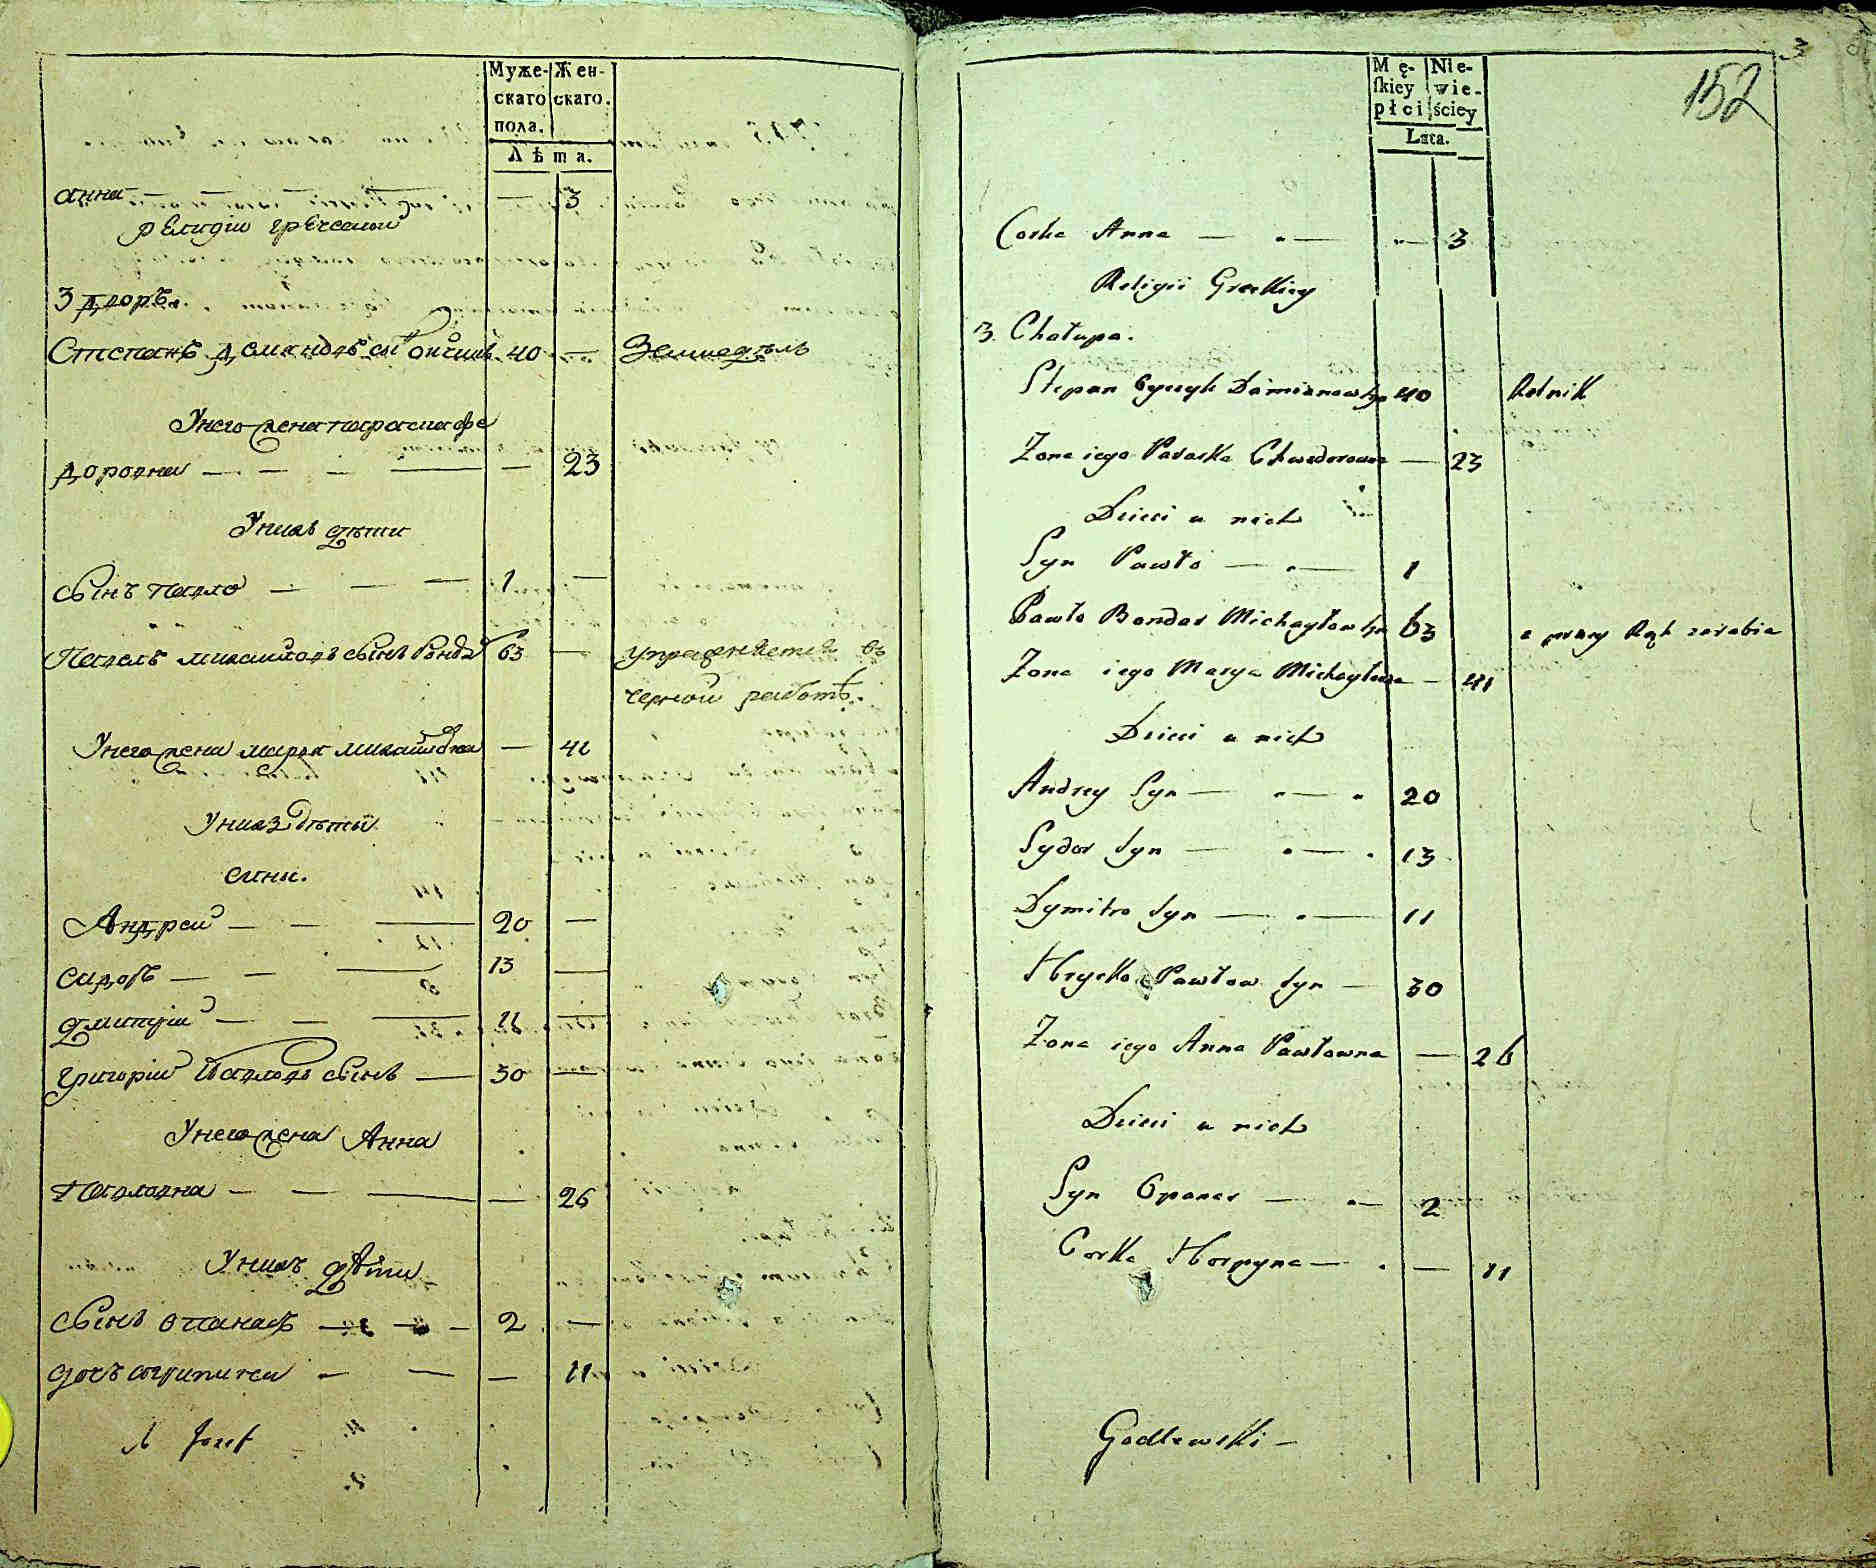 Муже-
скаго
пола.
Жен-
скаго.
Лѣта.
анна — — — — — 3
релидіи греческои
3 дворъ.
Степанъ демяновъ сы 40 — Земледѣлъ
У него жена параска фе
доровна — — — — — 23
У нихъ дѣти
сынъ павло — — — 1 —
Павелъ михаиловъ сынъ бондар 63 — упражняется въ
черной работѣ.
У него жена маря михаиловна — 41
У нихъ дѣти
сины.
Андреи — — — 20 —
сидоръ — — — 13 —
дмитріи — — — 11 —
григоріи Павловъ сынъ — 30 —
У него жена Анна
Павловна — — — — 26
У нихъ дѣти
сынъ опанасъ — — — 2 —
дочъ — — — 11
Jozef
3
152
Mę-
ſkiey
płci
Nie-
wie-
ściey
Lata.
Corka Anna — — — 3
Religii Greckiey
3. Chałupa.
Stepan Demianow 40 Rolnik
Żona iego Paraska Chwedorowna — 23
Dzieci u nich
Syn Pawło — — 1
Pawło Bondar Michayłow 63 z pracy Rąk zarabia
Żona iego Marya Michayłowna — 41
Dzieci u nich
Andrey Syn — — 20
Sydor Syn — — 13
Dymitro Syn — — 11
Hrycko Pawłow Syn — 30
Żona iego Anna Pawłowna — 26
Dzieci u nich
Syn Opanas — — 2
Corka Horpyna — — 11
Godlewski —